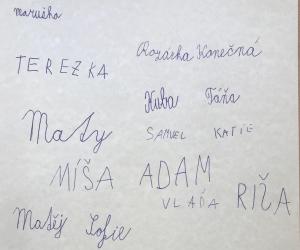 maruška
Rozárka Konečná
TEREZKA
Kuba Táňa
Maty
SAMUEL KATIE
MÍŠA ADAM
VLAĎA RÍŽA
Matěj Sofie